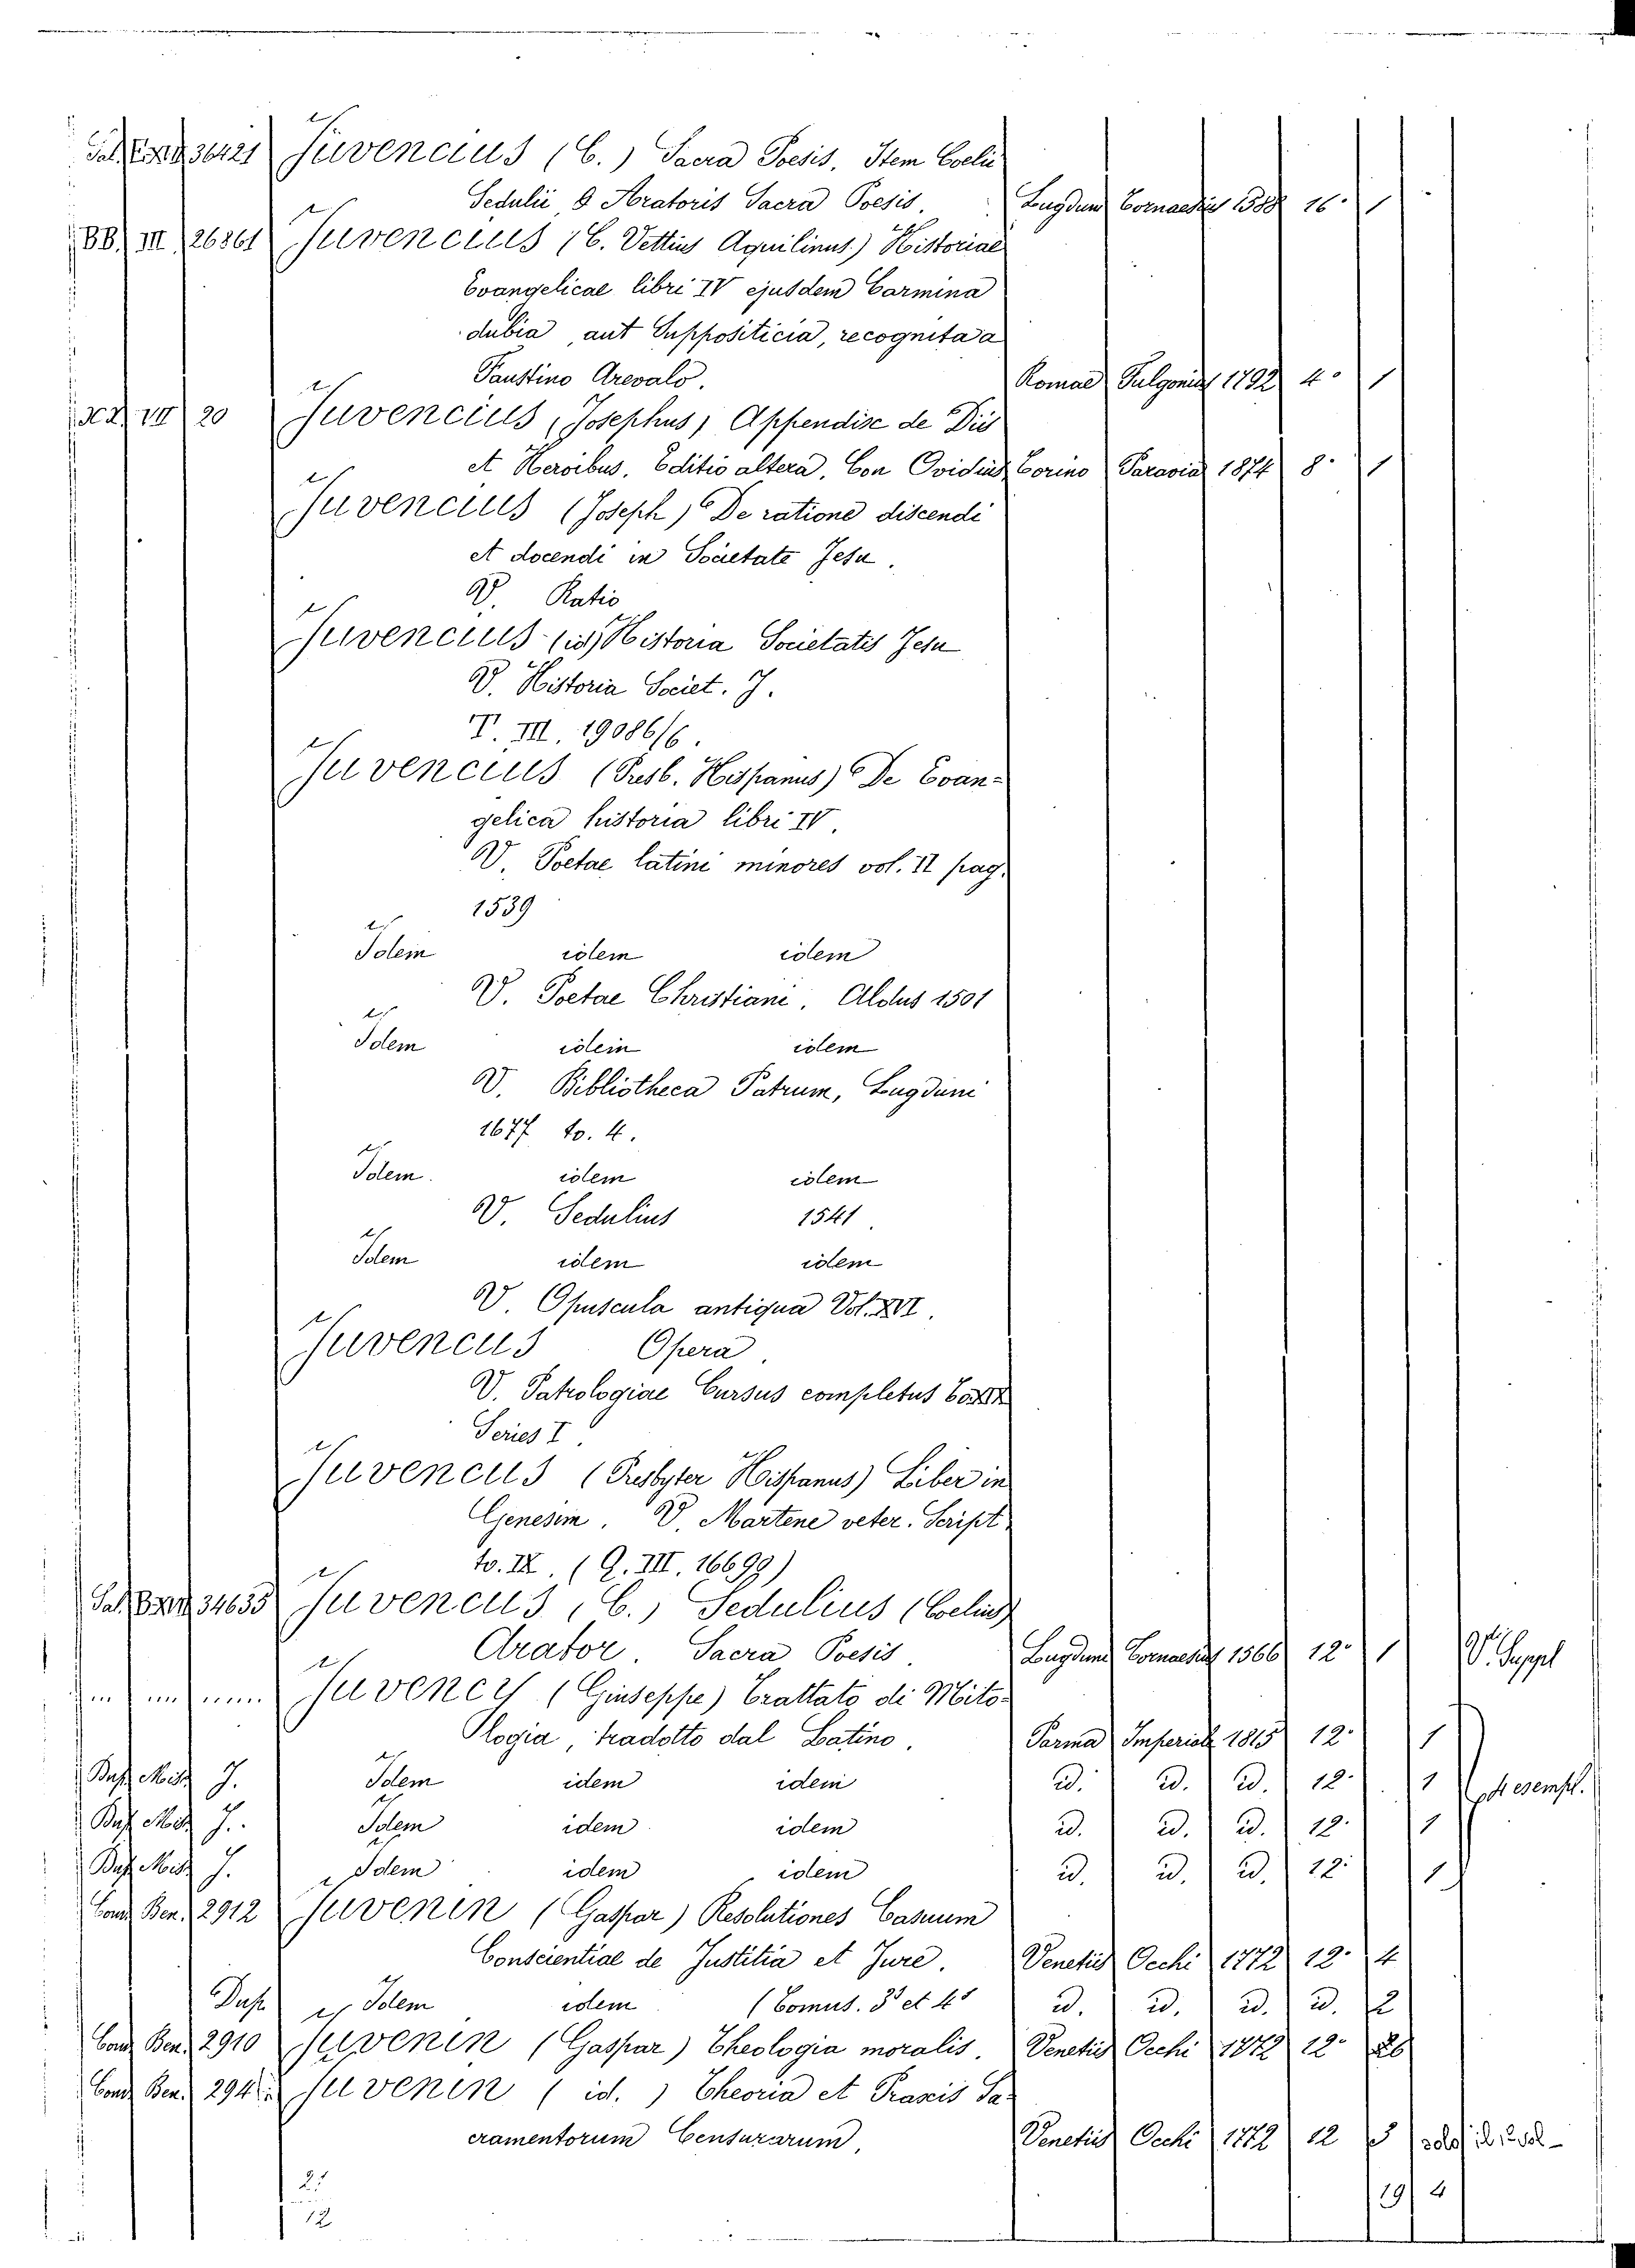 36421 Juvencius (C.) Sacra Poesis. Item Coelii
Sedulii & Aratoris Sacra Poesis. Lugduni 1588 16° 1
BB. III 26361 Juvencius (C. Vettius Aquilinus) Historiae
Evangelicae libri IV ejusdem Carmina
dubia, aut Suppositicia, recognita a
Faustino Arevalo. Romae Fulgonius 1792 4° 1
VII 20 Juvencius (Josephus) Appendix de Diis
et Heroibus. Editio altera. Con Ovidius Torino Paravia 1874 8° 1
Juvencius (Joseph) De ratione discendi
et docendi in Societate Jesu.
V. Ratio
Juvencius (id) Historia Societatis Jesu
V. Historia Societ. J.
T. III. 19086/6.
Juvencius (Presb. Hispanus) De Evan-
gelica historia libri IV.
V. Poetae latini minores vol. II pag.
1539
Idem idem idem
V. Poetae Christiani. Aldus 1501
Idem idem idem
V. Bibliotheca Patrum, Lugduni
1677 to. 4.
Idem. idem idem
V. Sedulius 1541.
Idem idem idem
V. Opuscula antiqua Vol. XVI.
Juvencus Opera.
V. Patrologiae Cursus completus
Series I.
Juvencus (Presbyter Hispanus) Liber in
Genesim. V. Martene veter. Script.
to. IX. (Q. III. 16699)
34635 Juvencus (C.) Sedulius (Coelius)
Arator. Sacra Poesis. Lugduni 1566 12° 1 V. Suppl
Juvency (Giuseppe) Trattato di Mito-
logia, tradotto dal Latino. Parma Imperiale 1815 12° 1
J. Idem idem idem id. id. id. 12° 1 4 esempl.
J. Idem idem idem id. id. id. 12° 1
J. Idem idem idem id. id. id. 12° 1
Cond Ben. 2912 Juvenin (Gaspar) Resolutiones Casuum
Conscientiae de Justitia et Jure. Venetiis Occhi 1772 12° 4
Dup. Idem idem (Tomus. 3° et 4° id. id. id. id. 2
Cond Ben. 2910 Juvenin (Gaspar) Theologia moralis. Venetiis Occhi 1772 12°
Cond Ben. 294 Juvenin (id.) Theoria et Praxis Sa-
cramentorum Censurarum, Venetiis Occhi 1772 12 5 solo il 12 vol-
21 19 4
12